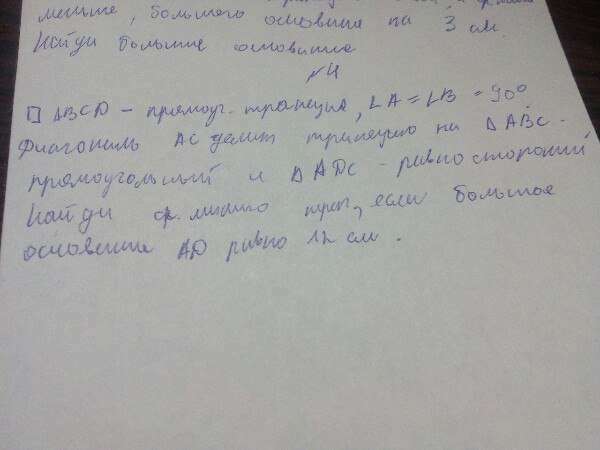 меньше, большего основания на 3 см
Найди большее основание
№4
ABCD - прямоуг. трапеция, ∠A = ∠B = 90°
Диагональ AC делит трапецию на △ABC -
прямоугольный и △ADC - равносторонний
Найди ср. линию трап, если большое
основание AD равно 12 см.